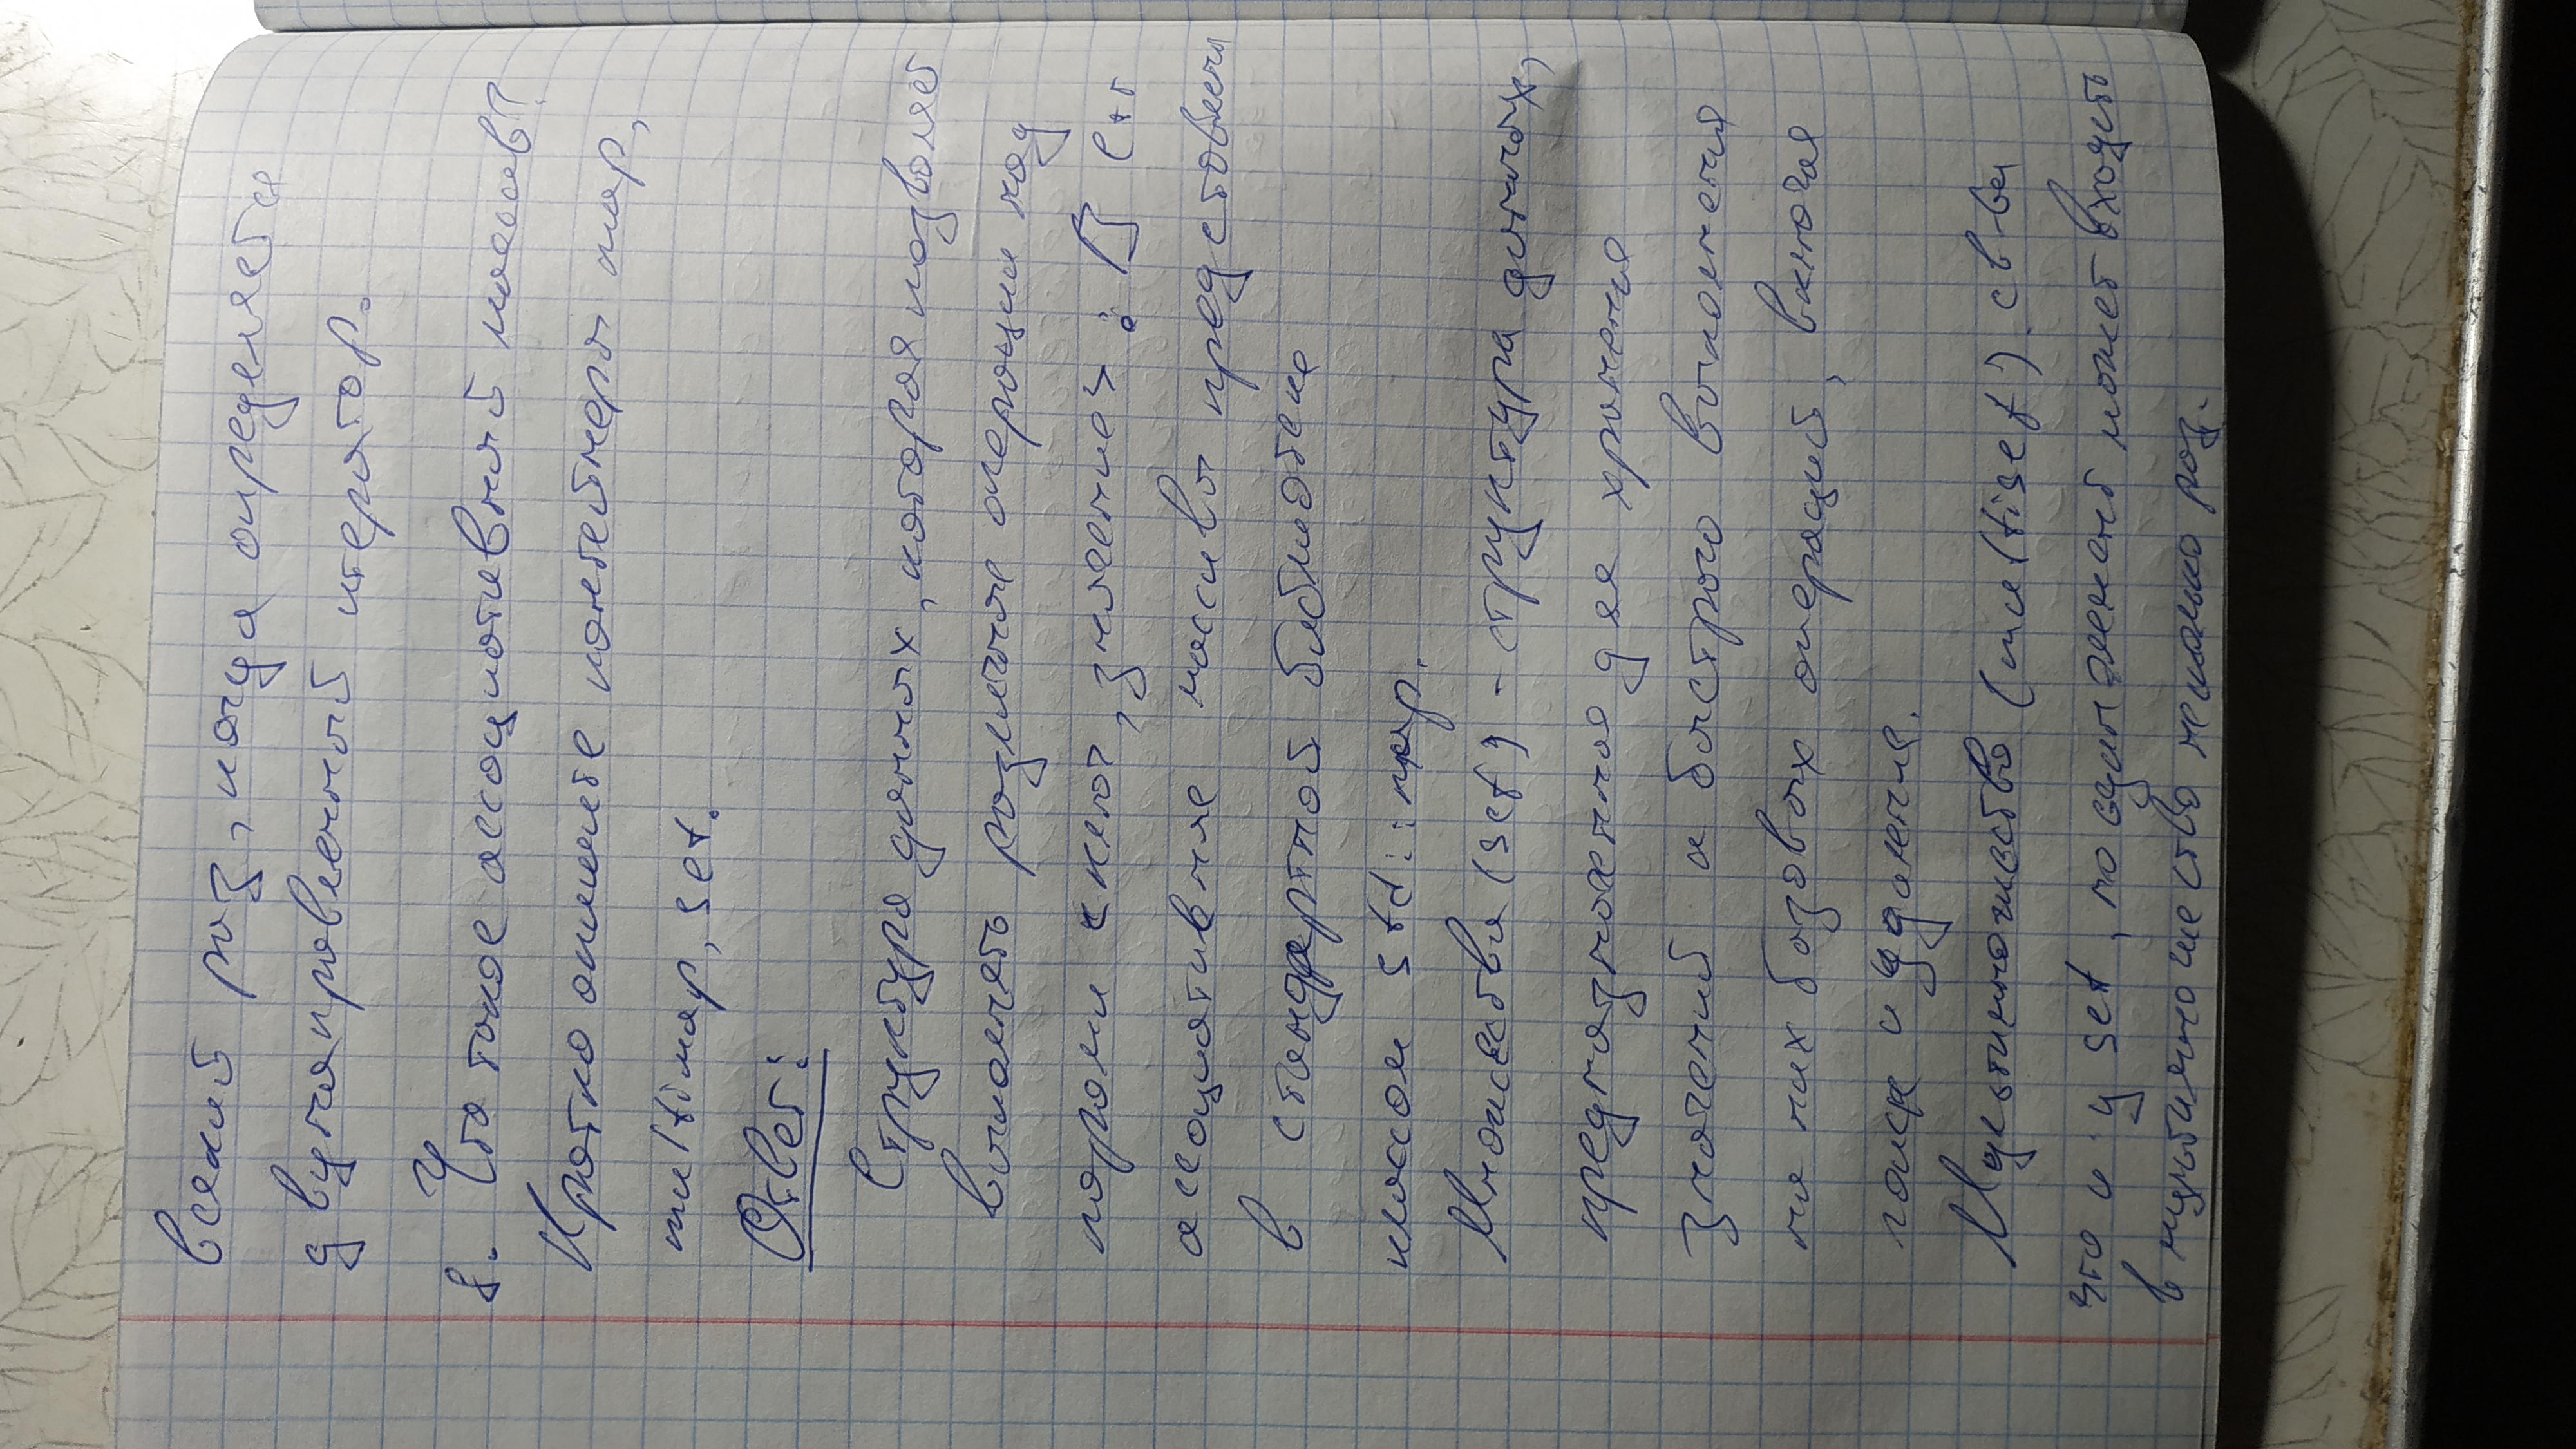 всякий раз, когда определяется
двунаправленный итератор.
8. Что такое ассоциативный массив?
Кратко опишите контейнеры map,
multimap, set.
Ответ:
Структура данных, которая позволяет
выполнять различные операции над
парами <ключ, значение>. В C++
ассоциативные массивы представлены
в стандартной библиотеке
классом std::map.
Множества (set) - структура данных,
предназначенная для хранения
значений и быстрого выполнения
на них базовых операций, включая
поиск и удаление.
Мультимножество (multiset) св-ва
что и у set, но один элемент может входить
в мультимножество несколько раз.